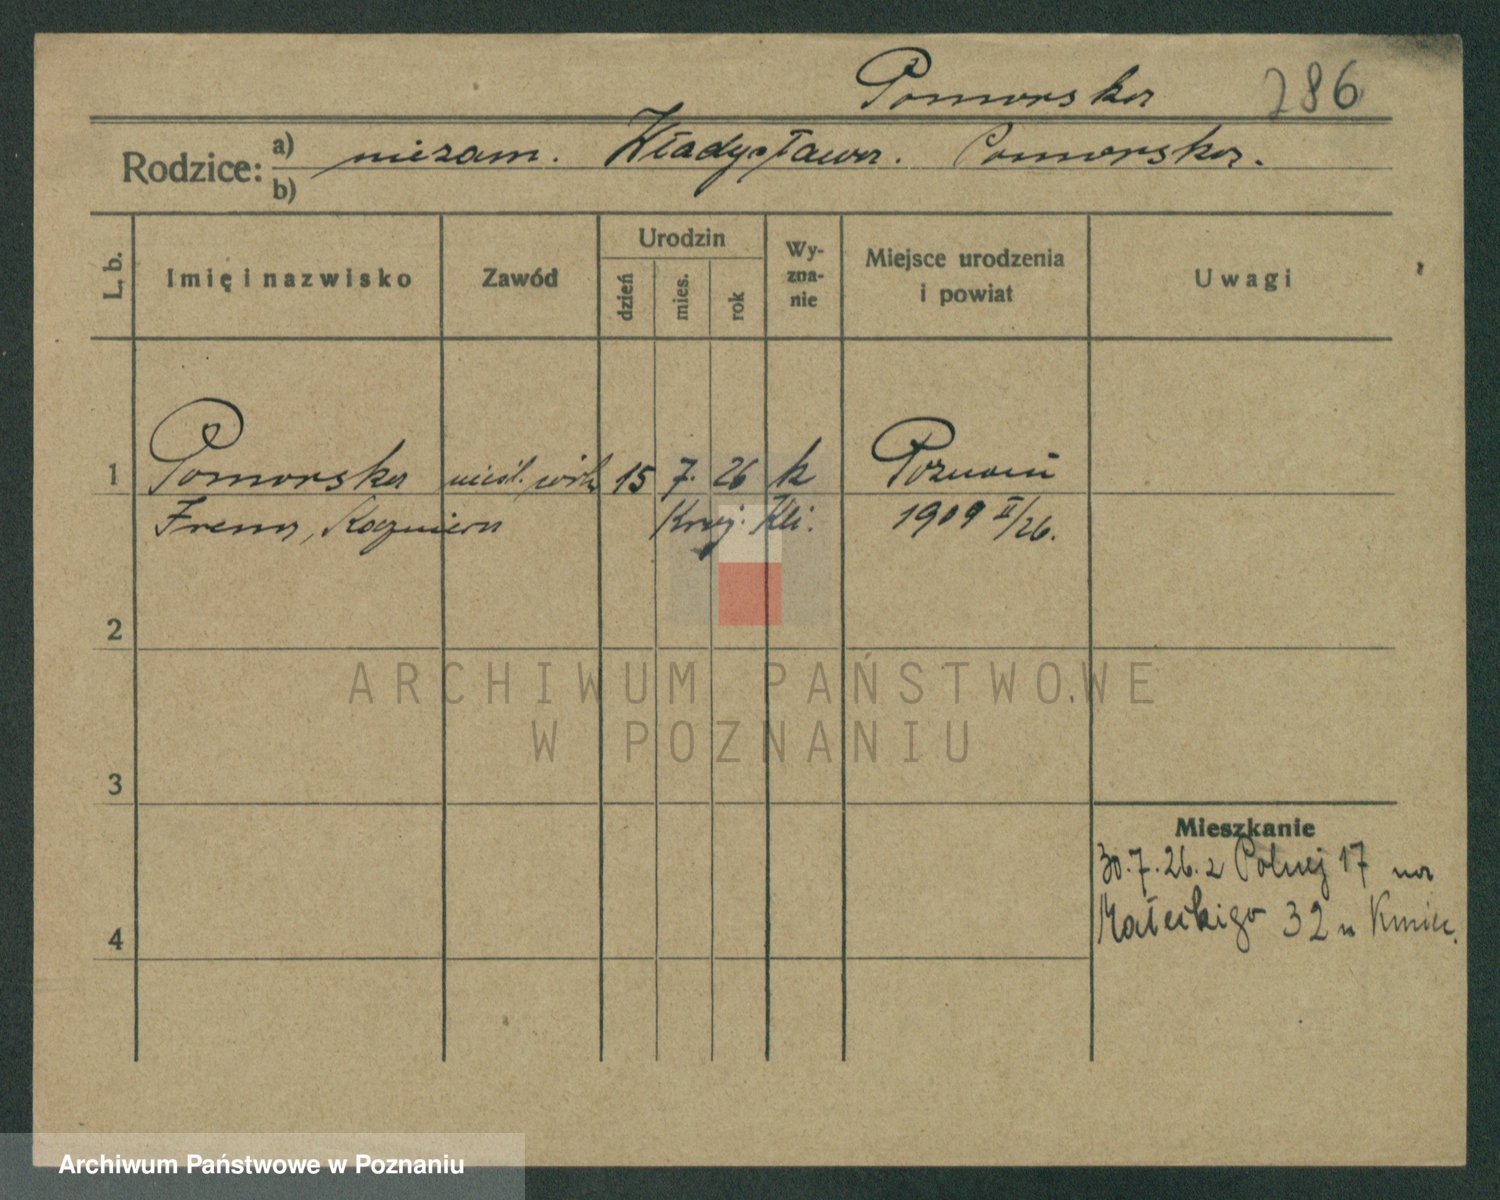 Pomorska 286
Rodzice: a) niezam. Władysława Pomorska.
b)
L. b.
Imię i nazwisko
Zawód
Urodzin
dzień
mies.
rok
Wy-
zna-
nie
Miejsce urodzenia
i powiat
Uwagi
1 Pomorska nieśl. córka 15 7. 26 k Poznań
Irena, Kazimiera 1909 II/26.
2
3
4
Mieszkanie
30.7.26. z Polnej 17 na
Małeckiego 32 u
ARCHIWUM PAŃSTWOWE
W POZNANIU
Archiwum Państwowe w Poznaniu